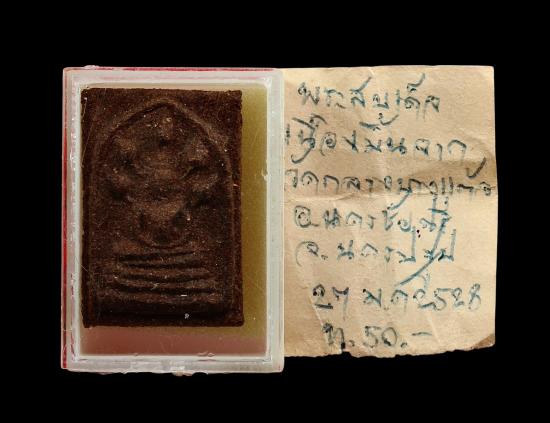 พระสมเด็จ
เนื้อ จาก
วัดกลางบางแก้ว
อ.นครชัยศรี
จ.นครปฐม
27 ม.ค 2528
ท.50.-